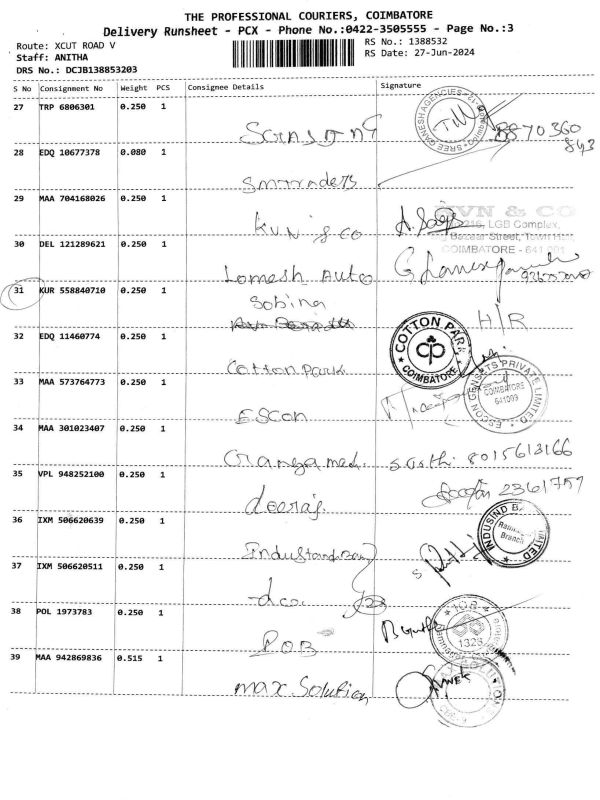 THE PROFESSIONAL COURIERS, COIMBATORE
Delivery Runsheet - PCX - Phone No.:0422-3505555 - Page No.:3
Route: XCUT ROAD V
RS No.: 1388532
Staff: ANITHA
RS Date: 27-Jun-2024
DRS No.: DCJB138853203
S No Consignment No Weight PCS Consignee Details Signature
27 TRP 6806301 0.250 1
28 EDQ 10677378 0.080 1
Smtraders
29 MAA 704168026 0.250 1
K.V.N & CO
KVN & CO
216, LGB Complex,
Bazaar Street, Town Hall
COIMBATORE - 641 001
30 DEL 121289621 0.250 1
Lomesh Auto
31 KUR 558840710 0.250 1
Sobing
H/R
32 EDQ 11460774 0.250 1
Cotton Park
COTTON PARK
COIMBATORE
33 MAA 573764773 0.250 1
Escon
ESCON GENSETS PRIVATE LIMITED
COIMBATORE
641009
34 MAA 301023407 0.250 1
Ganga med. 8015613166
35 VPL 948252100 0.250 1
deeraj. 2361757
36 IXM 506620639 0.250 1
Industand Bank
INDUSIND BANK LIMITED
Branch
37 IXM 506620511 0.250 1
-dco.
38 POL 1973783 0.250 1
IOB
1323
39 MAA 942869836 0.515 1
max Solution
MAX SOLUTION